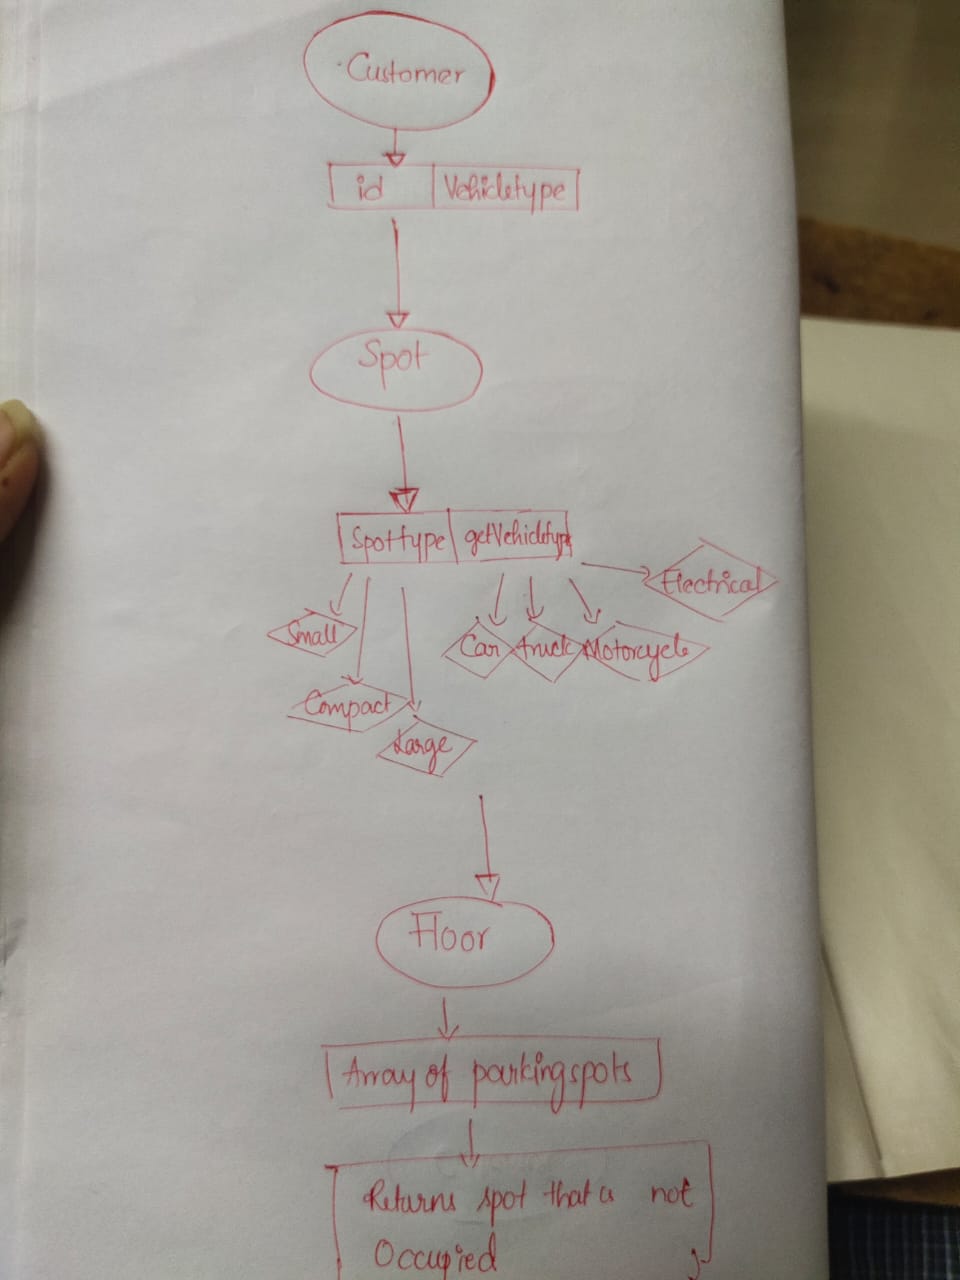 Customer
id Vehicletype
Spot
Spottype getVehicletype
Electrical
Small Car truck Motorcycle
Compact
Large
Floor
Array of parkingspots
Returns spot that is not
Occupied